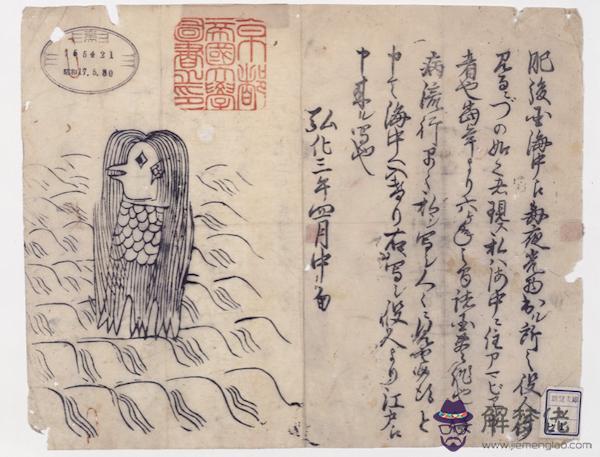 肥後国海中え毎夜光物出ル所之役人行
見るニづの如く者現ス私ハ海中ニ住アマビヱト申
者也当年より六ヶ年之間諸国豊作也併
病流行早々私ヲ写シ人々ニ見セ候得と
申て海中へ入けり右写シ役人より江戸え
申来ル写也
弘化三年四月中旬
京都
帝國大學
圖書之印
165421
昭和17.5.30
解梦佬
www.jiemenglao.com